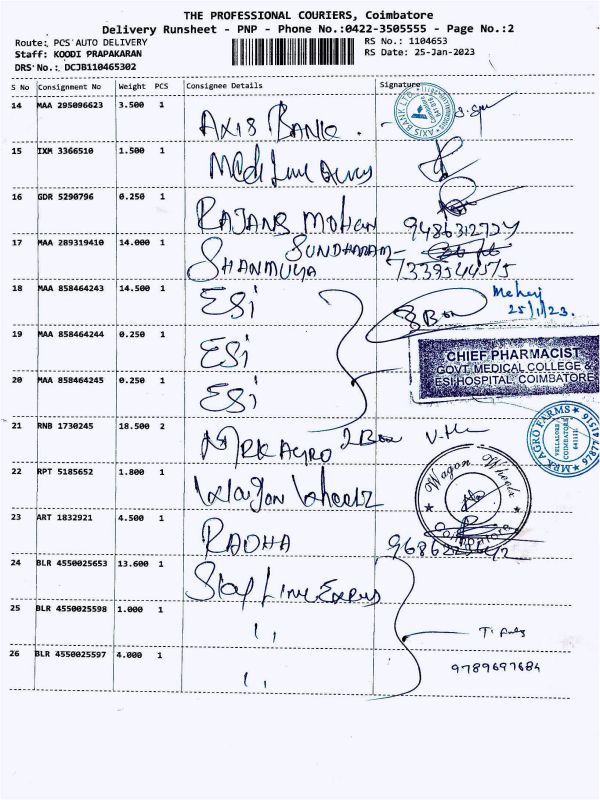 THE PROFESSIONAL COURIERS, Coimbatore
Delivery Runsheet - PNP - Phone No.:0422-3505555 - Page No.:2
Route: PCS AUTO DELIVERY RS No.: 1104653
Staff: KOODI PRAPAKARAN RS Date: 25-Jan-2023
DRS No.: DCJB110465302
S No Consignment No Weight PCS Consignee Details Signature
14 MAA 295096623 3.500 1 AXIS BANK.
AXIS BANK LTD
15 IXM 3366510 1.500 1
16 GDR 5290796 0.250 1 RAJANS MOHAN 9486312724
17 MAA 289319410 14.000 1 SHANMUGA SUNDHARAM 7339544575
18 MAA 858464243 14.500 1 ESi
25/1/23.
19 MAA 858464244 0.250 1 ESi
CHIEF PHARMACIST
GOVT. MEDICAL COLLEGE &
ESI HOSPITAL, COIMBATORE
20 MAA 858464245 0.250 1 ESi
21 RNB 1730245 18.500 2 MRK AGRO
MRK AGRO FARMS
COIMBATORE
22 RPT 5185652 1.800 1 Wagon Wheelz
Wagon Wheelz
Coimbatore
23 ART 1832921 4.500 1 RADHA
24 BLR 4550025653 13.600 1 Line Express
25 BLR 4550025598 1.000 1 ''
26 BLR 4550025597 4.000 1 ''
9789697684